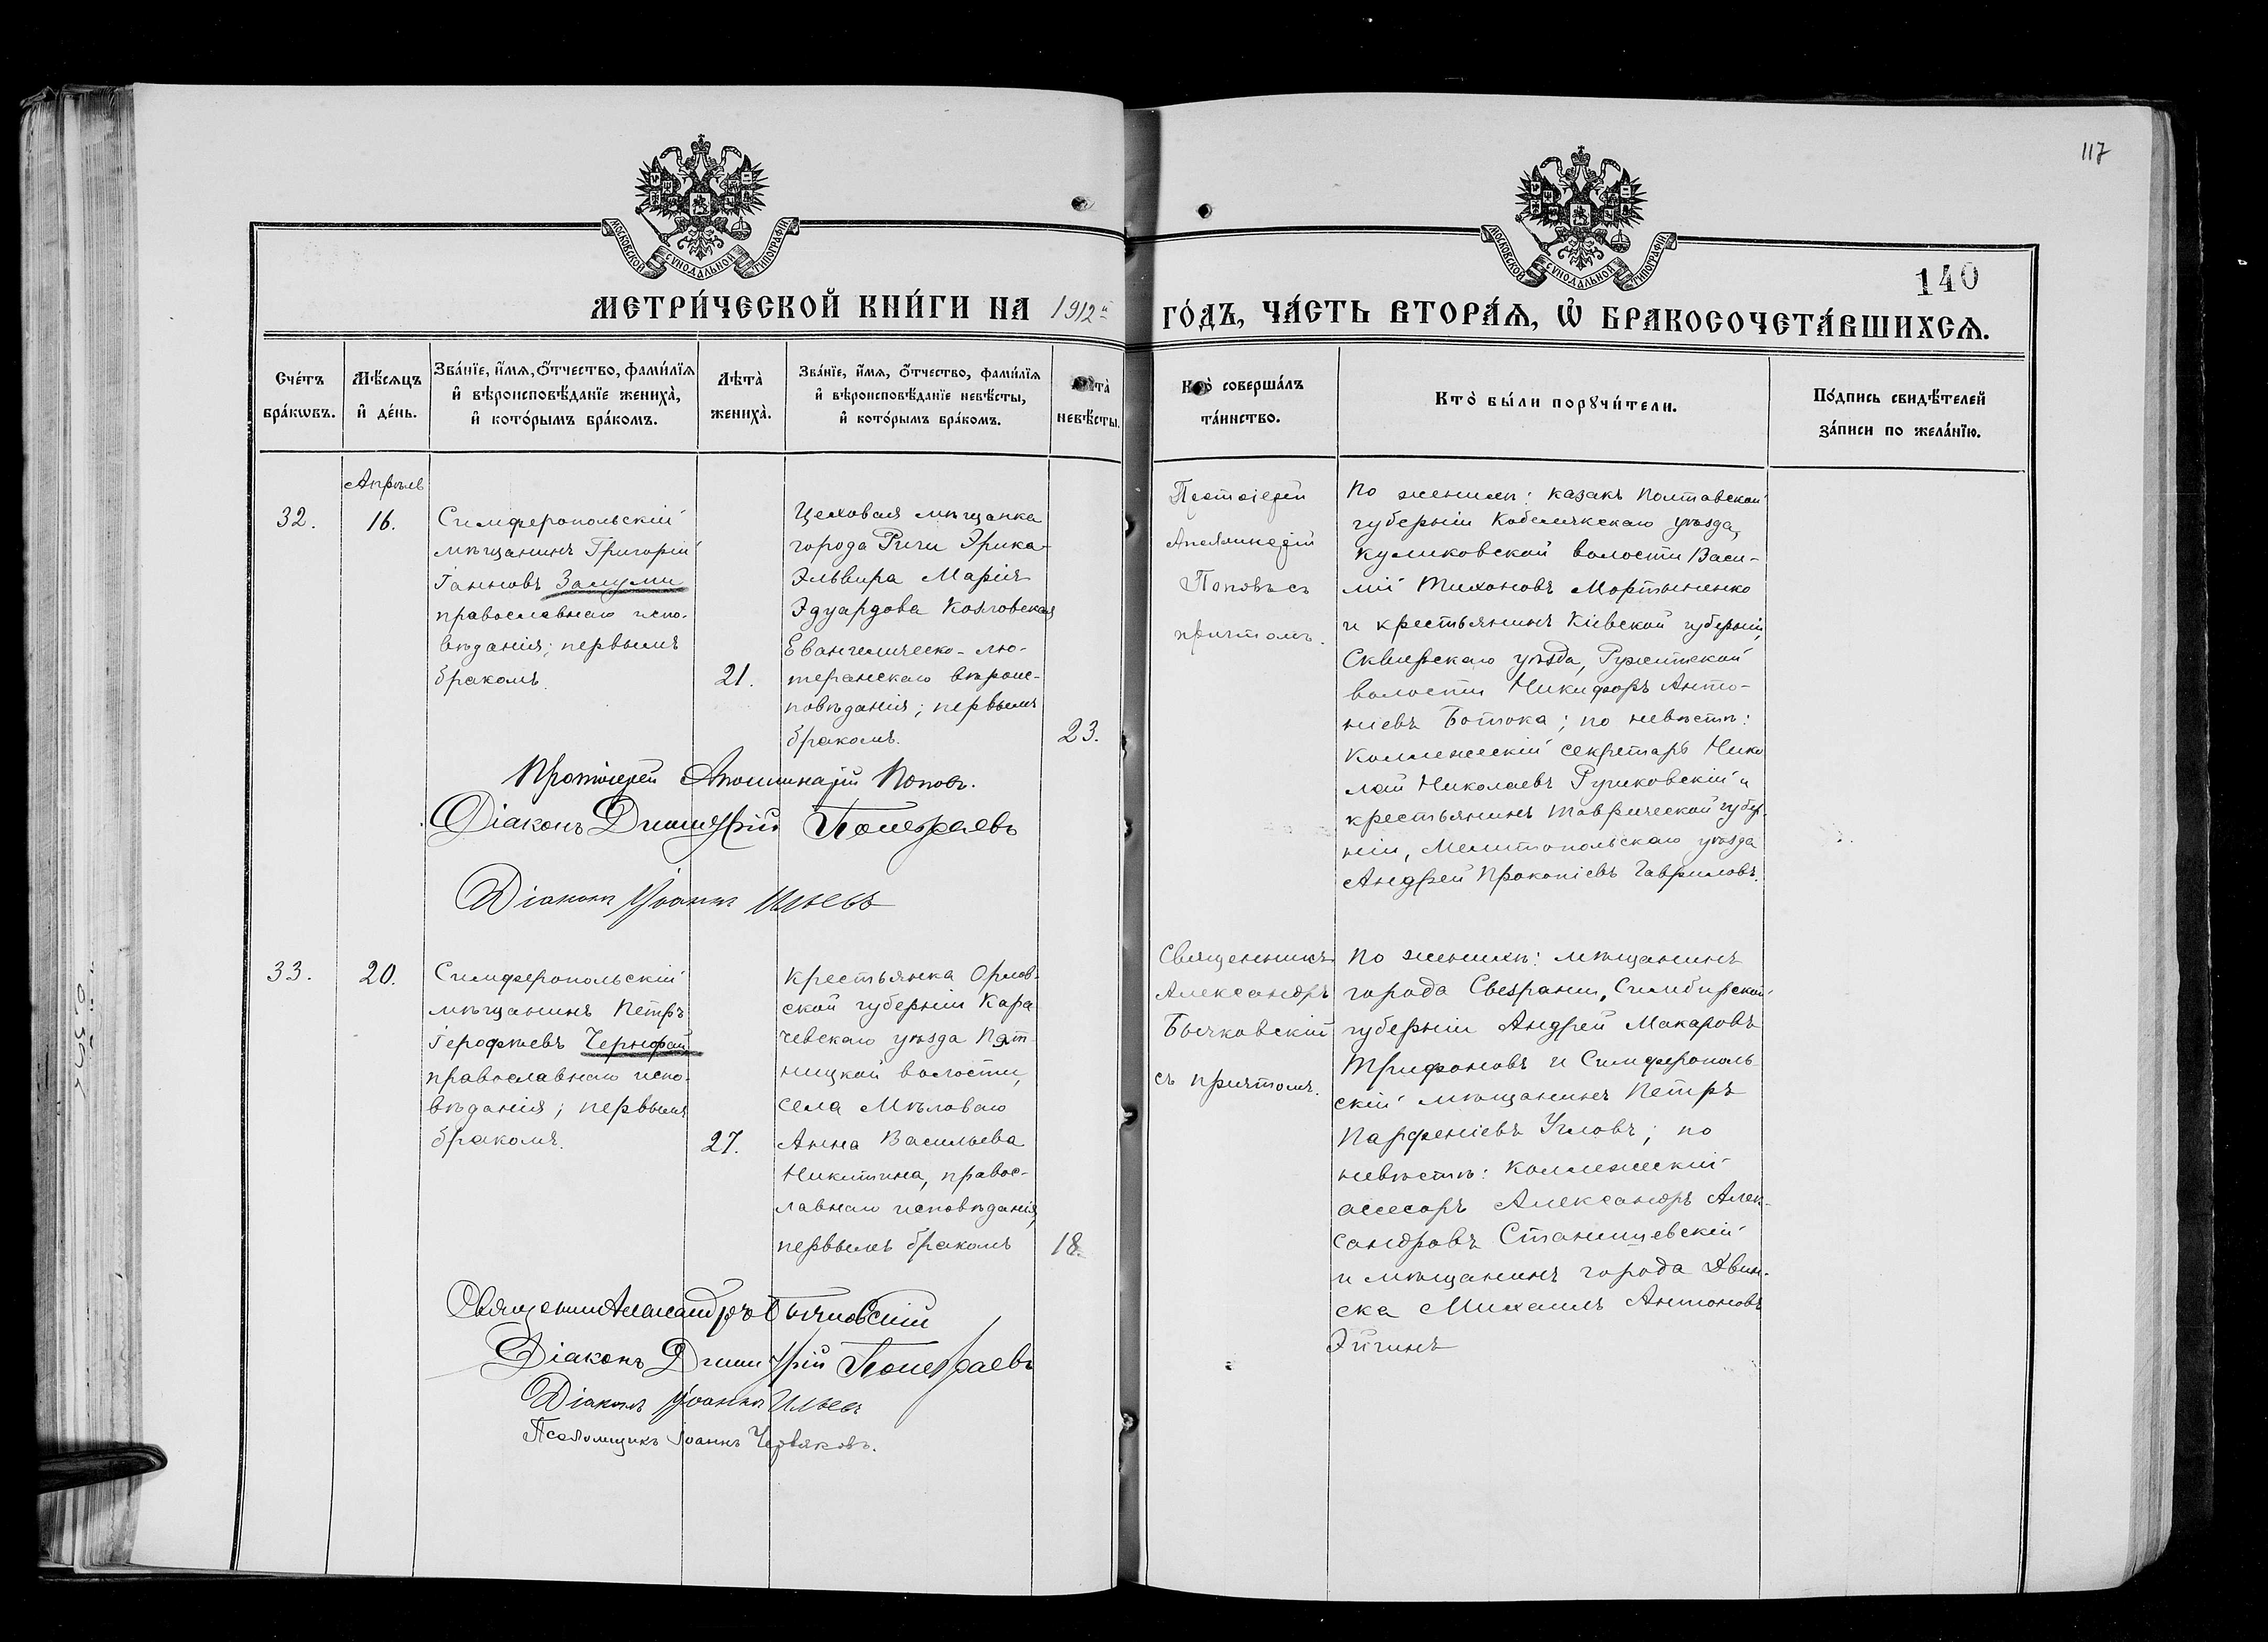 117
140
МОСКОВСКОЙ СѴНОДАЛЬНОЙ ТИПОГРАФІИ
МОСКОВСКОЙ СѴНОДАЛЬНОЙ ТИПОГРАФІИ
МЕТРИ́ЧЕСКОЙ КНИ́ГИ НА 1912й ГО́ДЪ, ЧА́СТЬ ВТОРА́Я, Ѡ҆ БРАКОСОЧЕТА́ВШИХСЯ.
Сче́тъ
бра́кѡвъ.
Мѣ́сяцъ
и҆ де́нь.
Зва́нїе, и҆́мя, о҆́тчество, фами́лїя
и҆ вѣроисповѣ́данїе жениха̀,
и҆ кото́рымъ бра́комъ.
Лѣта̀
жениха̀.
Зва́нїе, и҆́мя, о҆́тчество, фами́лїя
и҆ вѣроисповѣ́данїе невѣ́сты,
и҆ кото́рымъ бра́комъ.
Лѣта̀
невѣ́сты.
Кто̀ соверша́лъ
та́инство.
Кто̀ бы́ли порꙋчи́тели.
По́дпись свидѣ́телей
за́писи по жела́нїю.
Апрѣль
32.
16.
Симферопольскій
мѣщанинъ Григорій
Іанновъ
православнаго испо-
вѣданія; первымъ
бракомъ.
21.
Цеховая мѣщанка
города Риги Эрика-
Эльвира Марія
Эдуардова Козловская
Евангелическо-лю-
теранскаго вѣроис-
повѣданія; первымъ
бракомъ.
23.
Протоіерей
Аполлинарій
Поповъ съ
причтомъ.
По женихѣ: казакъ Полтавской
губерніи Кобелякскаго уѣзда,
Куликовской волости Васи-
лій Тихоновъ Мартыненко
и крестьянинъ Кіевской губерніи,
Сквирскаго уѣзда, Ружинской
волости Никифоръ Анто-
ніевъ; по невѣстѣ:
Коллежскій секретарь Нико
лай Николаевъ и
крестьянинъ Таврической губер-
ніи, Мелитопольскаго уѣзда
Андрей Прокопіевъ Гавриловъ.
Протоіерей Аполлинарій Поповъ.
Діаконъ Димитрій
Діаконъ Іоаннъ Ильевъ
33.
20.
Симферопольскій
мѣщанинъ Петръ
Іерофѣевъ Чернофай
православнаго испо-
вѣданія; первымъ
бракомъ.
27.
Крестьянка Орлов-
ской губерніи Кара
чевскаго уѣзда Пят-
ницкой волости,
села Мѣловаго
Анна Васильева
Никитина, правос-
лавнаго исповѣданія,
первымъ бракомъ
18.
Священникъ
Александръ
Бычковскій
съ причтомъ.
По женихѣ: мѣщанинъ
города Сызрани, Симбирской
губерніи Андрей Макаровъ
Трифоновъ и Симферополь
скій мѣщанинъ Петръ
Парфеніевъ Угловъ; по
невѣстѣ: Коллежскій
асесоръ Александръ Алек-
сандровъ Станишевскій
и мѣщанинъ города Двин-
ска Михаилъ Антоновъ
Эйгинъ
Священникъ Александръ Бычковскій
Діаконъ Димитрій
Діаконъ Іоаннъ Ильевъ
Псаломщикъ Іоаннъ Червяковъ.